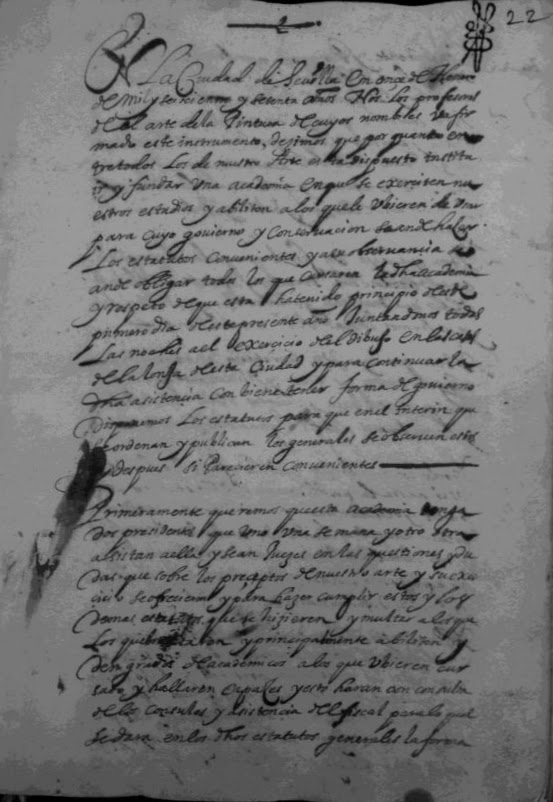 2
22
En La Ciudad de Sevilla En once de Henero
de Mil y seiscientos y setenta años Nos Los profesores
de el arte de la Pintura de cuyos nombles va fir
mado este instrumento, desimos que por quanto en
tre todos Los de nuestro Arte esta dispuesto institu
ir y fundar Una academia en que se exerciten nu
estros estudios y abiliten a los que le ubieren de
para cuyo govierno y Conservacion se ande haser
Los estatutos Convenientes y a su observancia se
ande obligar todos los que Cursaren la dha academia
y respeto de que esta ha tenido principio desde
primero dia de este presente año Juntandonos todas
Las noches a el exercicio del Dibujo en las casas
de la lonja de esta Ciudad y para continuar la
dha asistencia con bien tener forma de govierno
Disponemos Los estatutos para que en el interin que
se ordenan y publican los generales se observen estos
y despues si Parecieren convenientes
Primeramente queremos que esta academia tenga
Dos presidentes que Uno Una semana y otro otra
asistan a ella y sean Juezes en las questiones y du
das que sobre los preceptos de nuestro arte y su exer
cicio se ofrecieren y para hazer cumplir estos y los
demas estatutos que se hizieren y multar a los que
Los quebrantaren y principalmente abiliten y
den grados de academicos a los que ubieren cur
sado y hallaren capases y esto haran con consulta
de los consules y asistencia del fiscal para lo qual
se dara en los dhos estatutos generales la forma